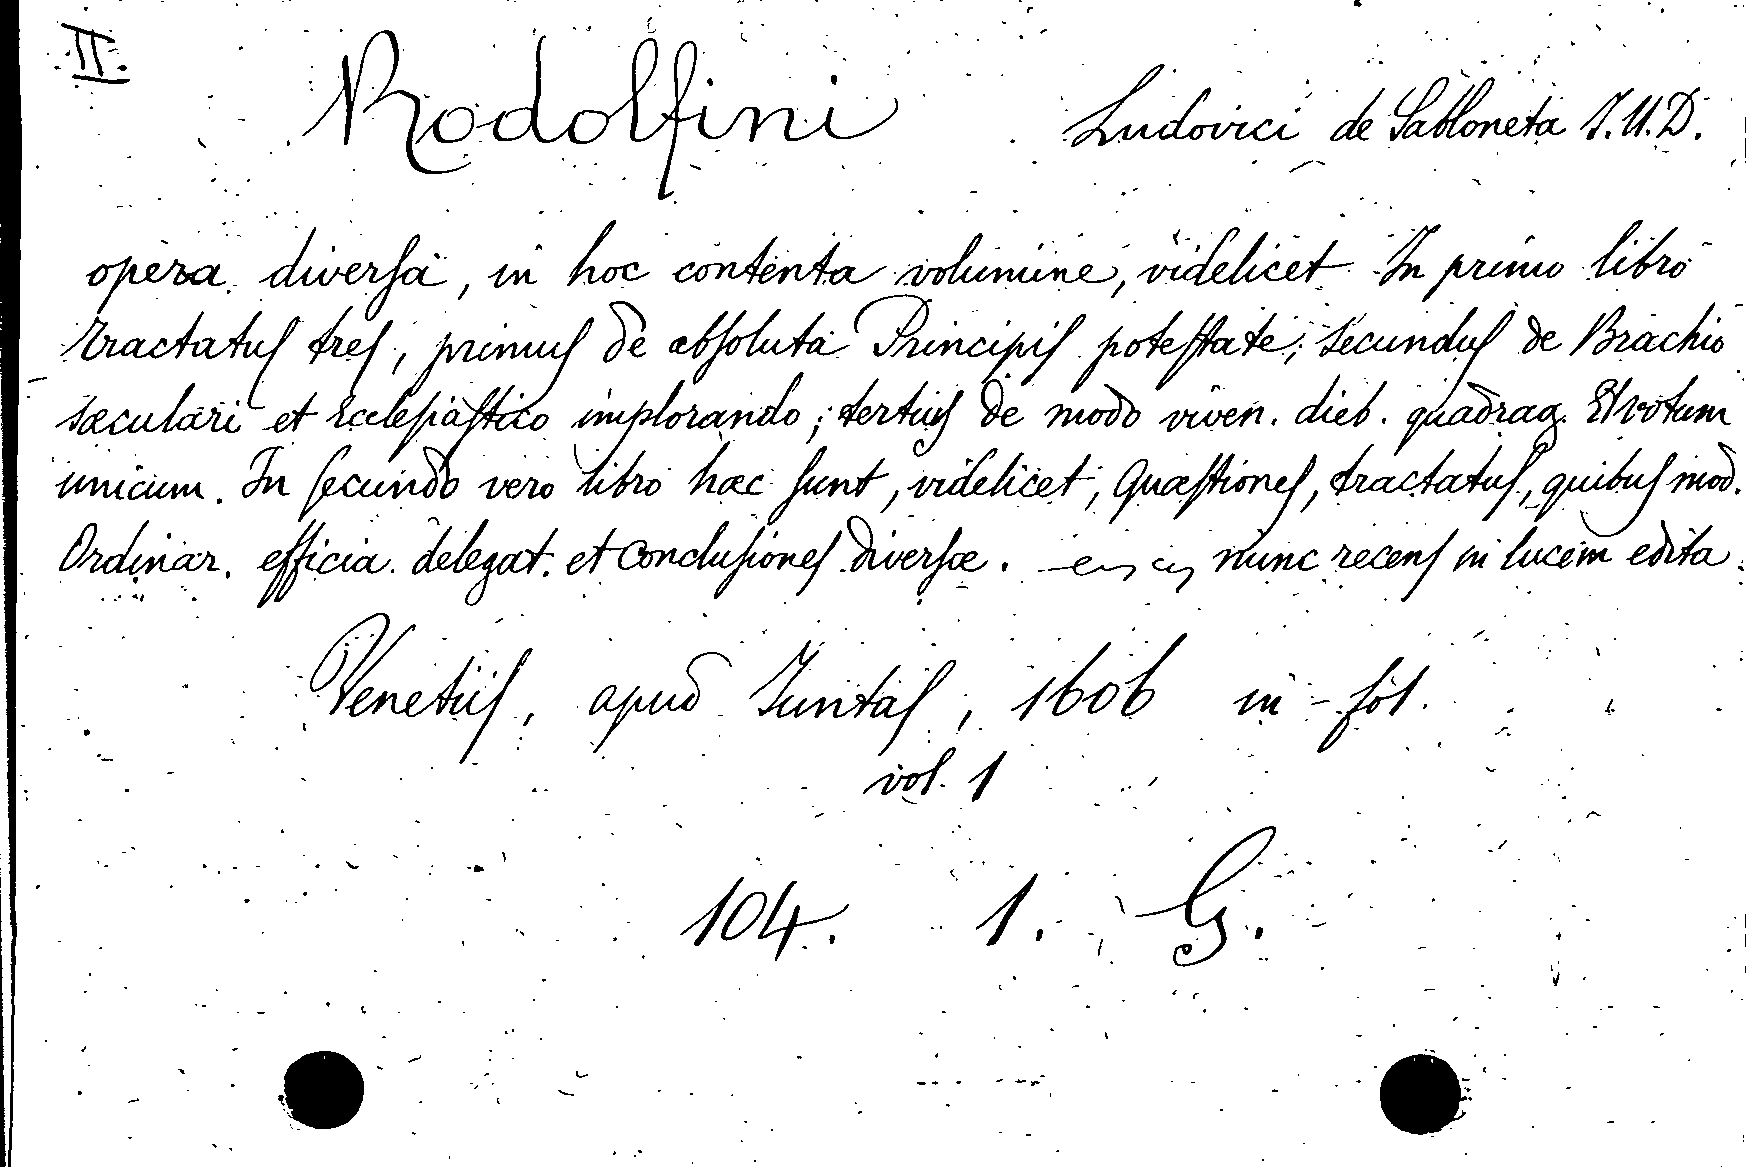 II.
Rodolfini Ludovici de Sabloneta J.U.D.
opera diversa, in hoc contenta volumine, videlicet In primo libro
tractatus tres, primus de absoluta Principis potestate; secundus de Brachio
sæculari et Ecclesiastico implorando; tertius de modo viven. dieb. quadrag. Et votum
unicum. In secundo vero libro hæc sunt, videlicet, Quæstiones, tractatus, quibus mod.
Ordinar. efficia. delegat. et Conclusiones diversæ. nunc recens in lucem edita.
Venetiis, apud Juntas, 1606 in-fol.
vol. 1
104. 1. G.